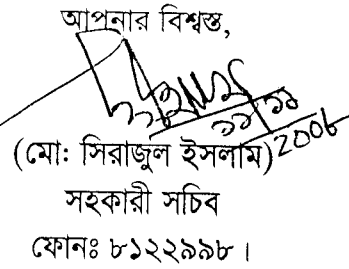 আপনার বিশ্বস্ত,
(মো: সিরাজুল ইসলাম)
সহকারী সচিব
ফোনঃ ৮১২২৯৯৮।